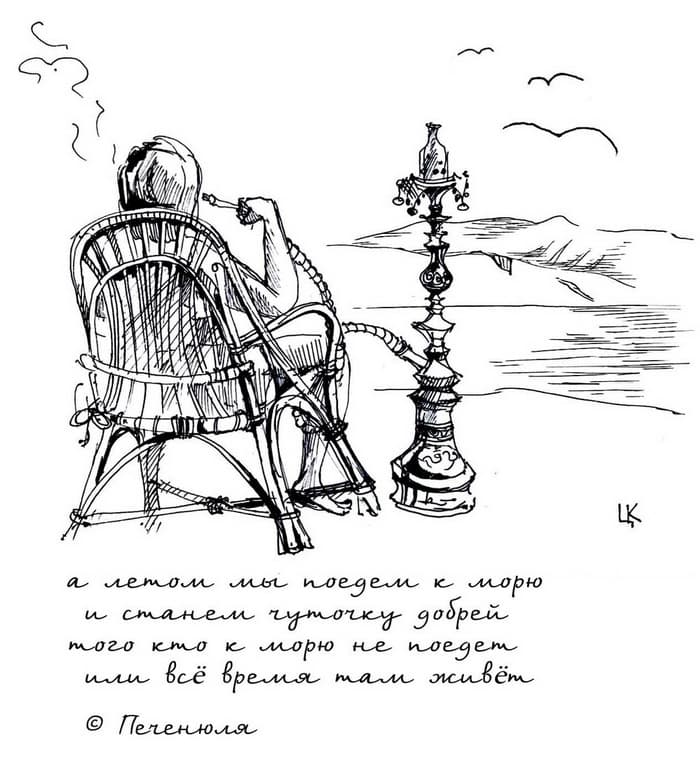 ЦК
а летом мы поедем к морю
и станем чуточку добрей
того кто к морю не поедет
или всё время там живёт
© Печенюля